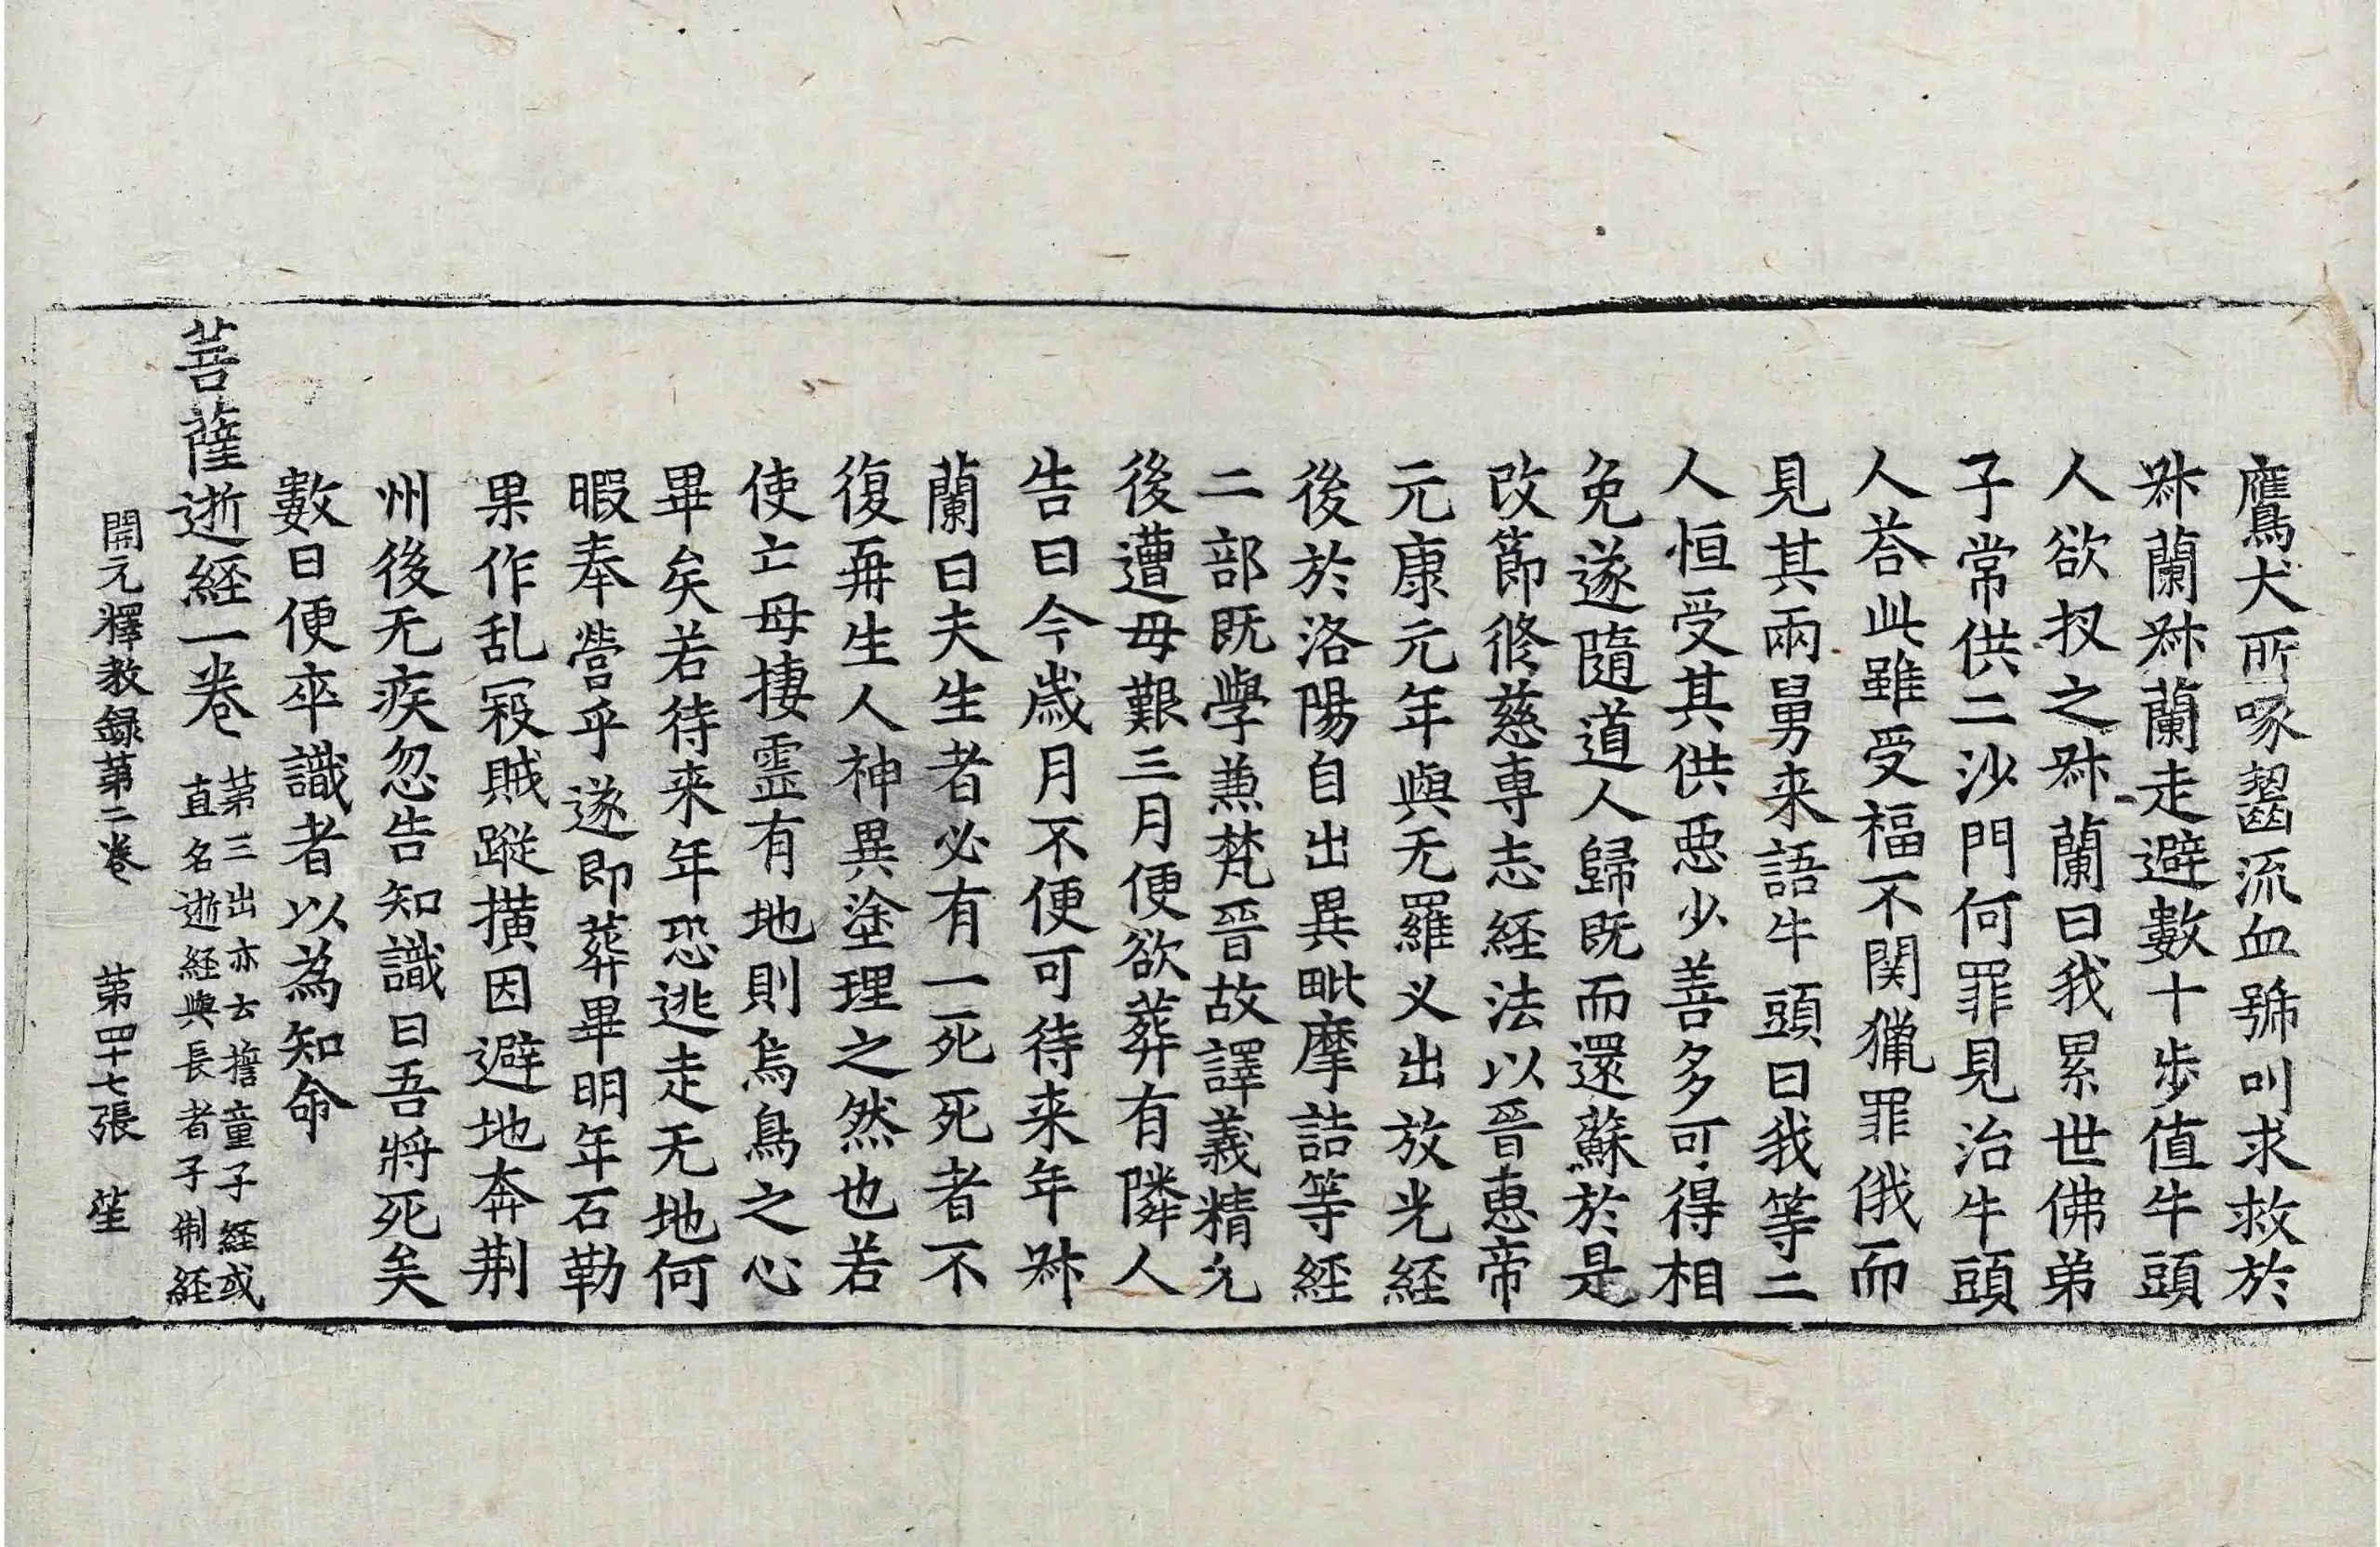 鷹犬所啄齧流血號叫求救於
𭕄蘭𭕄蘭走避數十步值牛頭
人欲扠之𭕄蘭曰我累世佛弟
子常供二沙門何罪見治牛頭
人荅此雖受福不関獵罪俄而
見其兩舅来語牛頭曰我等二
人恒受其供惡少善多可得相
免遂隨道人歸既而還蘇於是
改節修慈専志経法以晉惠帝
元康元年與无羅叉出放光経
後於洛陽自出異毗摩詰等経
二部既學兼梵晉故譯義精允
後遭母艱三月便欲葬有隣人
告曰今歲月不便可待来年𭕄
蘭曰夫生者必有一死死者不
復再生人神異塗理之然也若
使亡母捿靈有地則烏鳥之心
畢矣若待来年恐逃走无地何
暇奉營乎遂即葬畢明年石勒
果作乱㓂賊蹤撗因避地奔荆
州後无疾忽告知識曰吾將死矣
數日便卒識者以為知命
菩薩逝経一卷
第三出亦去擔童子経或
直名逝経與長者子制経
開元釋教録第二卷 第四十七張 笙